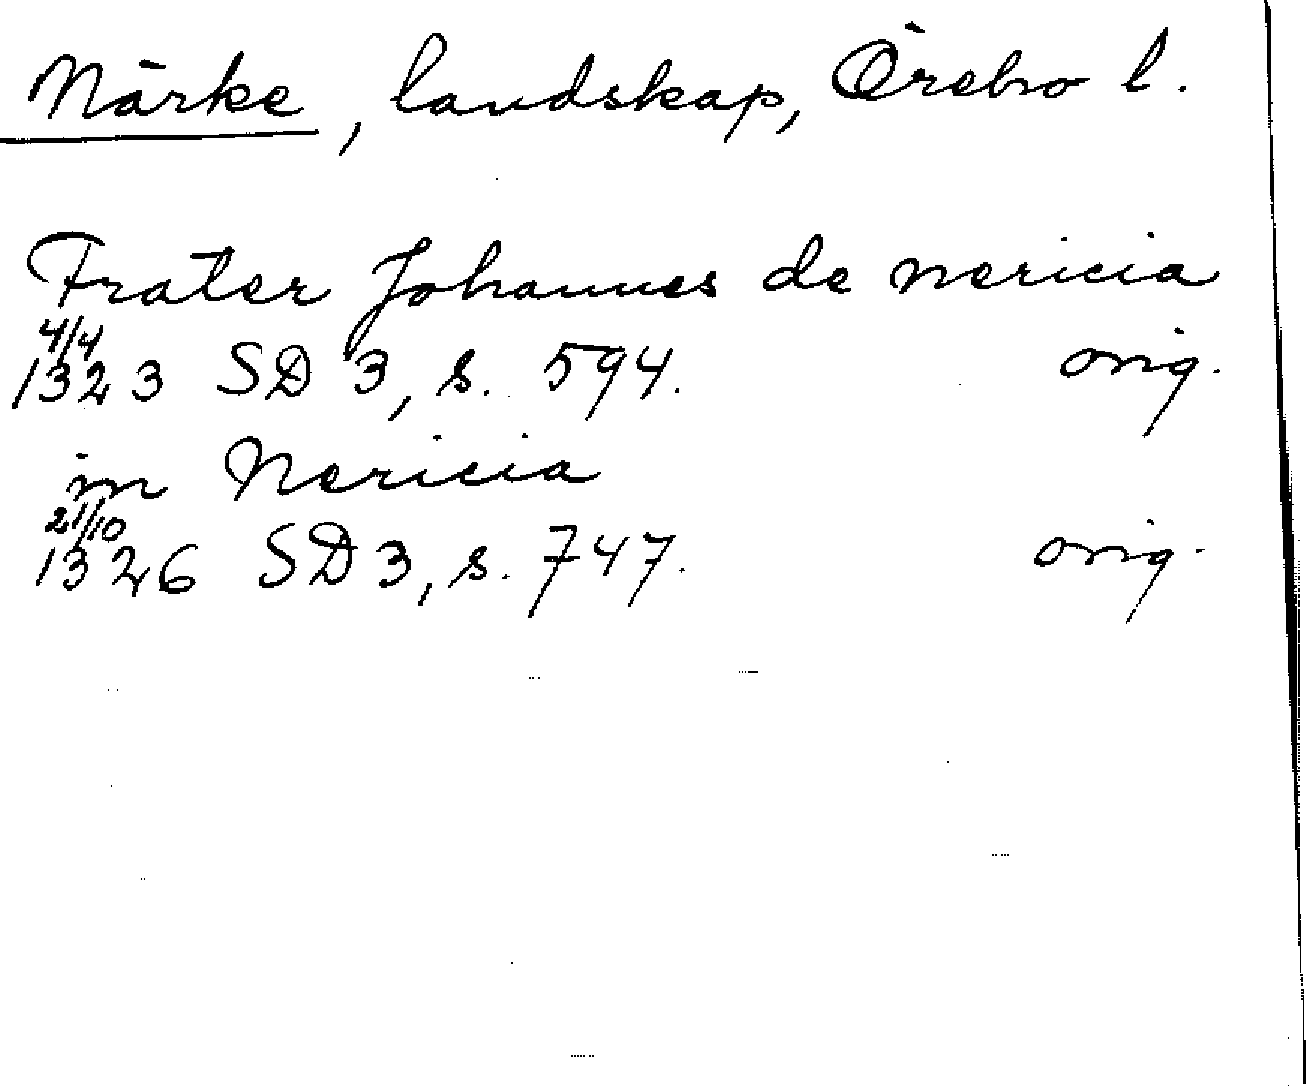 Närke, landskap, Örebro l.
Frater Johannes de nericia
4/4
1323 SD 3, s. 594. orig.
in Nericia
21/10
1326 SD 3, s. 747. orig.